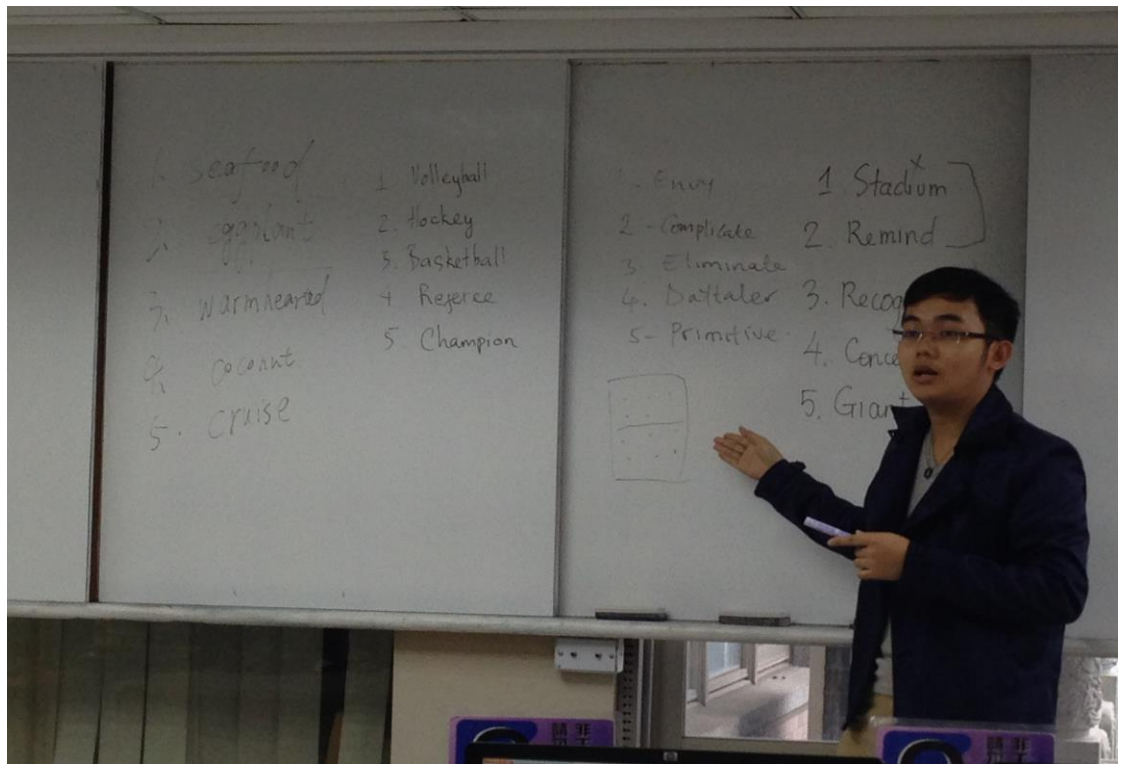 1. seafood
2. eggplant
3. warmhearted
4. coconut
5. cruise
1 Volleyball
2. Hockey
3. Basketball
4 Referee
5. Champion
1 - Envy
2 - Complicate
3. Eliminate
4.
5 - Primitive
1 Stadium
x
2. Remind
3. Recog
4. Conce
5. Giant
hp
請 非